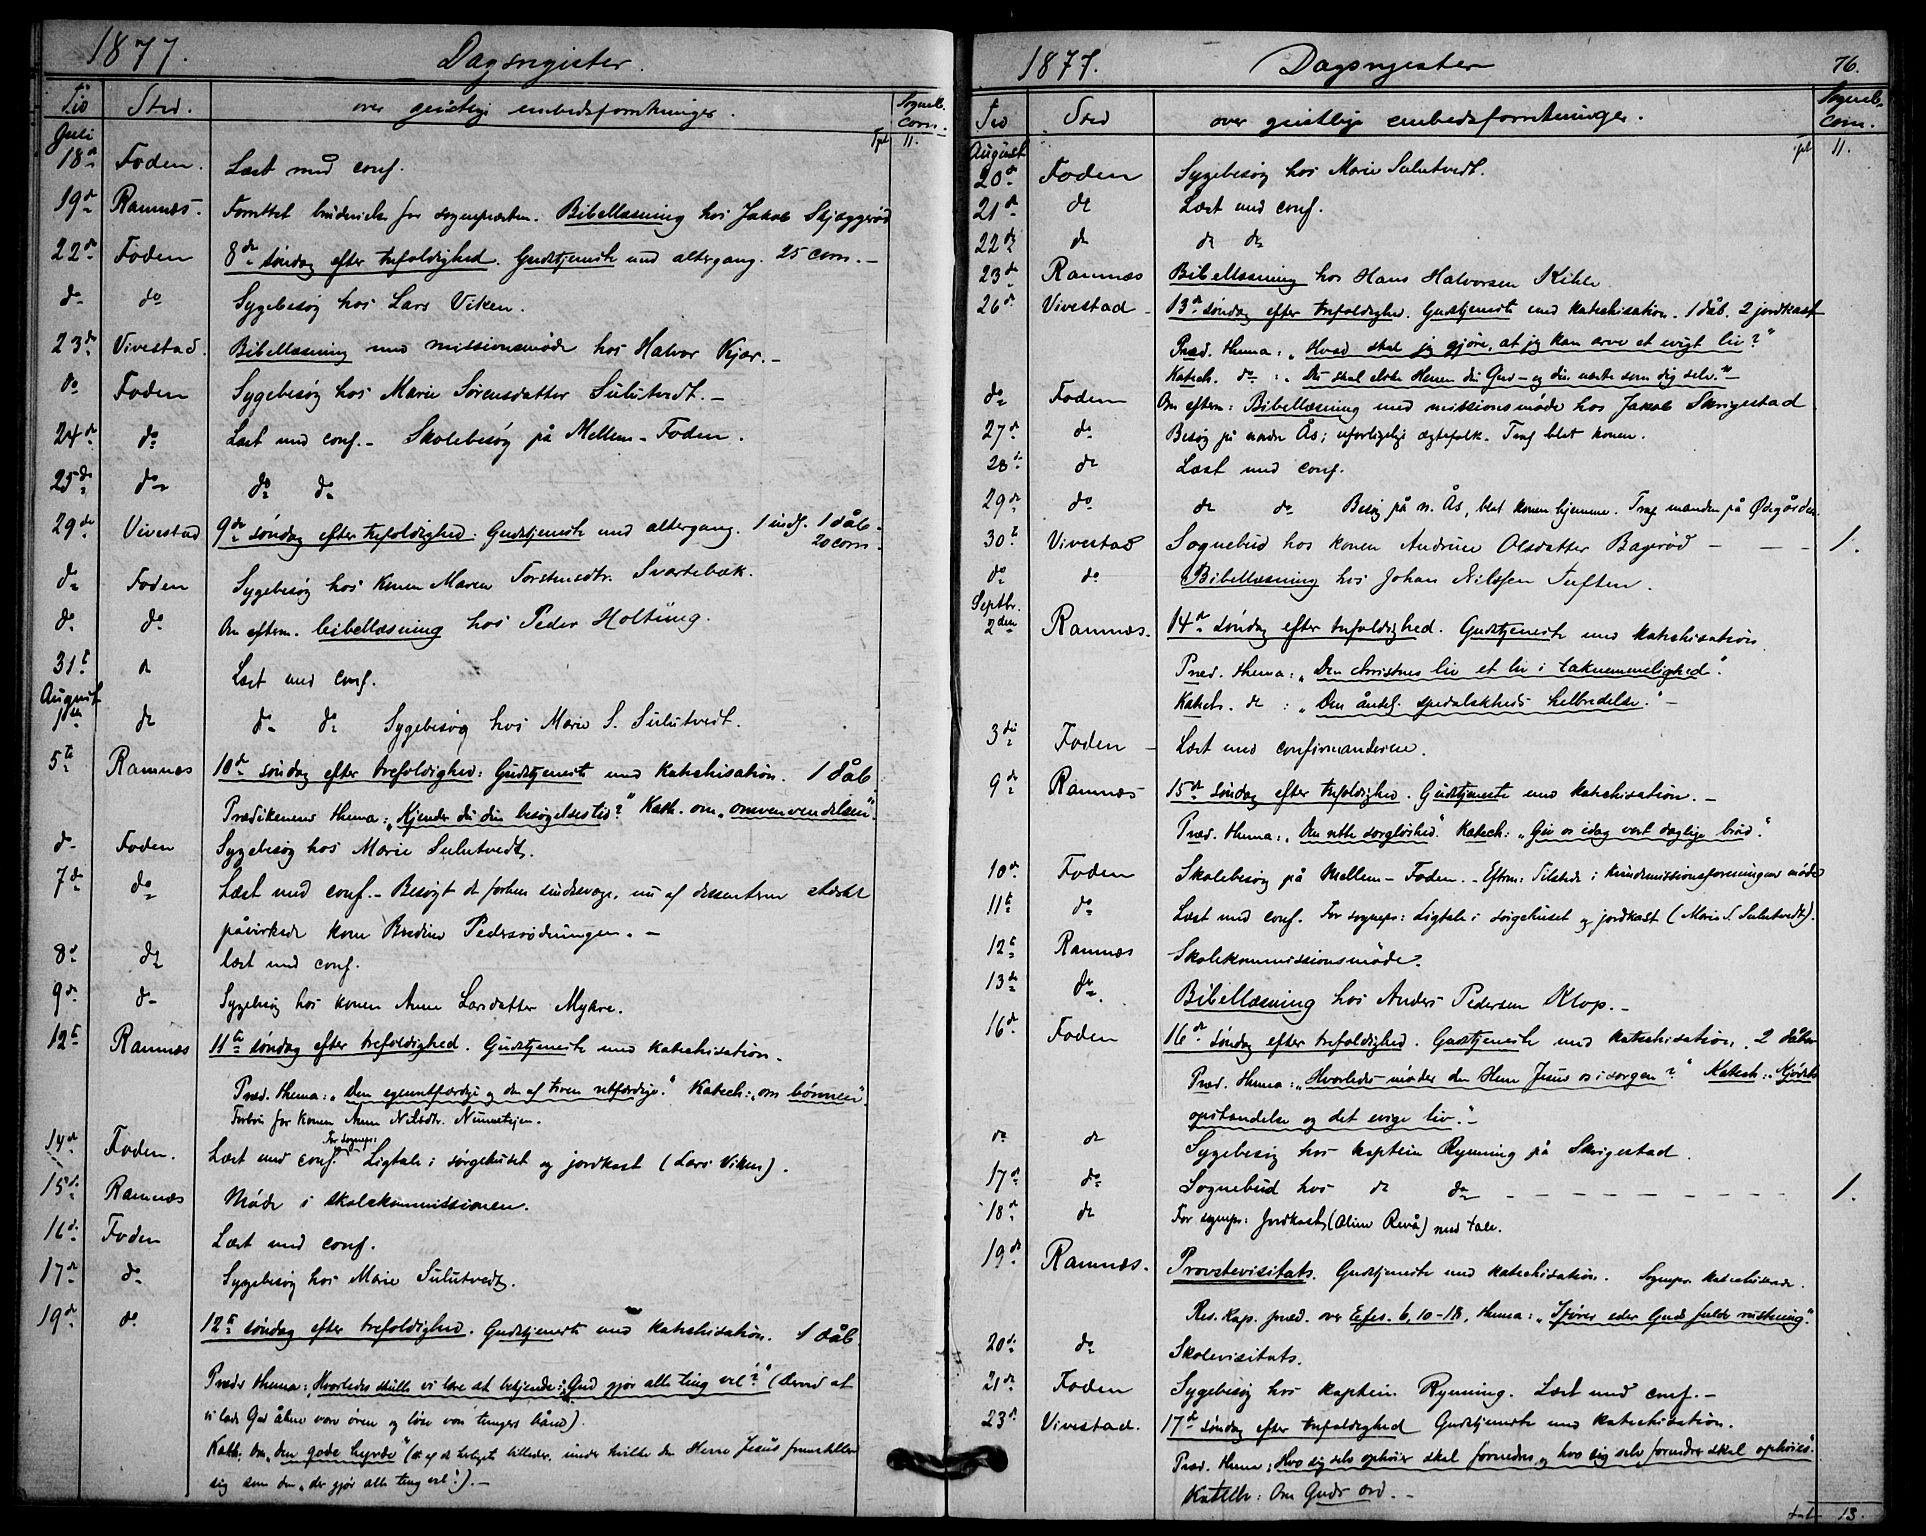 1877.
Dagsregister.
Tid Sted. over geistlige embedsforretninger. Sogneb. com.
Juli Tpt 11.
18de Foden. Læst med conf.
19de Ramnes. Forrettet for sognepræsten. Bibellæsning hos Jakob Skjæggerød
22de Foden 8de søndag efter trefoldighed. Gudstjeneste med altergang. 25 com. –
do do Sygebesøg hos Lars Viken.
23de Vivestad. Bibellæsning med missionsmøde hos Halvor Kjær. –
do Foden Sygebesøg hos Marie Sørensdatter Sulutvedt. –
24de do Læst med conf. – Skolebesøg på Mellem-Foden.
25de do do do
29de Vivestad 9de søndag efter trefoldighed: Gudstjeneste med altergang. 1 indl. 1 dåb.
20 com.
do Foden Sygebesøg hos konen Maren Torstensdtr. Svartebæk.
do do Om efterm. bibellæsning hos Peder Holtung.
31te do Læst med conf.
August
1ste do do do Sygebesøg hos Marie S. Sulutvedt.
5te Ramnæs 10de søndag efter trefoldighed: Gudstjeneste med katechisation. 1 dåb
Prædikenens thema: „Kjender du din besøgelsestid?" Kath. om „omvenvendelsen".
do Foden Sygebesøg hos Marie Sulutvedt.
7de do Læst med conf. – Besøgt de forhen sindssvage, nu af dissenterne stærkt
påvirkede kone Bredine Pedersrødningen. –
8de do læst med conf.
9de do Sygebesøg hos konen Anne Larsdatter Myhre.
12te Ramnæs 11te søndag efter trefoldighed. Gudstjeneste med katechisation.
Præd. thema: „Den egenretfærdige og den af troen retfærdige." Katech: „om bønnen".
Forbøn for konen Anne Nilsdtr.
For sognepr:
14de Foden. Læst med conf. Ligtale i sørgehuset og jordkast (Lars Viken).
15de Ramnæs Møde i skolekommissionen.
16de Foden Læst med conf.
17de do Sygebesøg hos Marie Sulutvedt.
19de do 12te søndag efter trefoldighed. Gudstjeneste med katechisation. 1 dåb.
Præd. thema: Hvorledes skulle vi lære at bekjende: „Gud gjør alle ting vel"? (derved at
vi lade Gud åbne vore øren og løse vor tunges bånd).
Kath. om „den gode hyrde" (et af de herligste billeder, under hvilke den Herre Jesus fremstiller
sig som den „der gjør alle ting vel".). –
1877. Dagsregister 76.
Tid Sted over geistlige embedsforretninger. Sogneb. com.
August tpt 11.
20de Foden Sygebesøg hos Marie Sulutvedt.
21de do Læst med conf.
22de do do do
23de Ramnæs Bibellæsning hos Hans Halvorsen Kihle
26de Vivestad – 13de søndag efter trefoldighed. Gudstjeneste med katechisation. 1 dåb. 2 jordkast
Præd. thema: „Hvad skal jeg gjøre, at jeg kan arve et evigt liv?"
Katech. do: „Du skal elske Herren din Gud – og din næste som dig selv." –
do Foden Om efterm: Bibellæsning med missionsmøde hos Jakob Skrigestad
27de do Besøg på nordre Ås; uforligelige ægtefolk. Traf blot konen.
28de do Læst med conf.
29de do do do Besøg på n. Ås, blot konen hjemme. Traf manden på Ødegården.
30te Vivestad Sognebud hos konen Andrine Olsdatter Bagerød – – – 1.
do do Bibellæsning hos Johan Nilssen Tuften.
Septbr.
2den Ramnæs. 14de søndag efter trefoldighed. Gudstjeneste med katechisation
Præd. thema: „Den christnes liv et liv i taknemmelighed".
Katech. do: „Den åndel. spedalskheds helbredelse." –
3die Foden – Læst med confirmanderne.
9de Ramnæs 15de søndag efter trefoldighed. Gudstjeneste med katechisation. –
Præd. thema: „Den rette sorgløshed". Katech: „Giv os idag vort daglige brød".
10de Foden Skolebesøg på Mellem-Foden. – Efterm: Tilstede i kvindemissionsforeningens møde
11te do Læst med conf. For sognepr: Ligtale i sørgehuset og jordkast (Marie S. Sulutvedt).
12te Ramnæs Skolekommissionsmøde.
13de do Bibellæsning hos Anders Pedersen Klop. –
16de Foden 16de søndag efter trefoldighed. Gudstjeneste med katechisation. 2 dåber
Præd. thema: „Hvorledes møder den Herre Jesus os i sorgen?" Katech: „Kjødets
opstandelse og det evige liv". –
do do Sygebesøg hos kaptein Rynning på Skrigestad.
17de do Sognebud hos do do – – – – – – – – 1.
18de do For sognepr: Jordkast (Oline Revå) med tale.
19de Ramnæs. Provstevisitats. Gudstjeneste med katechisation. Sognepr. katechiserede.
Res. kap. præd. over Efes. 6, 10-18, thema: „Ifører eder Guds fulde rustning".
20de do Skolevisitats.
21de Foden Sygebesøg hos kaptein Rynning. Læst med conf. –
23de Vivestad. 17de søndag efter trefoldighed Gudstjeneste med katechisation.
Præd. thema: „Hvo sig selv ophøier skal fornedres, og hvo sig selv fornedrer skal ophøies".
Katech: Om Guds ord. –
13.